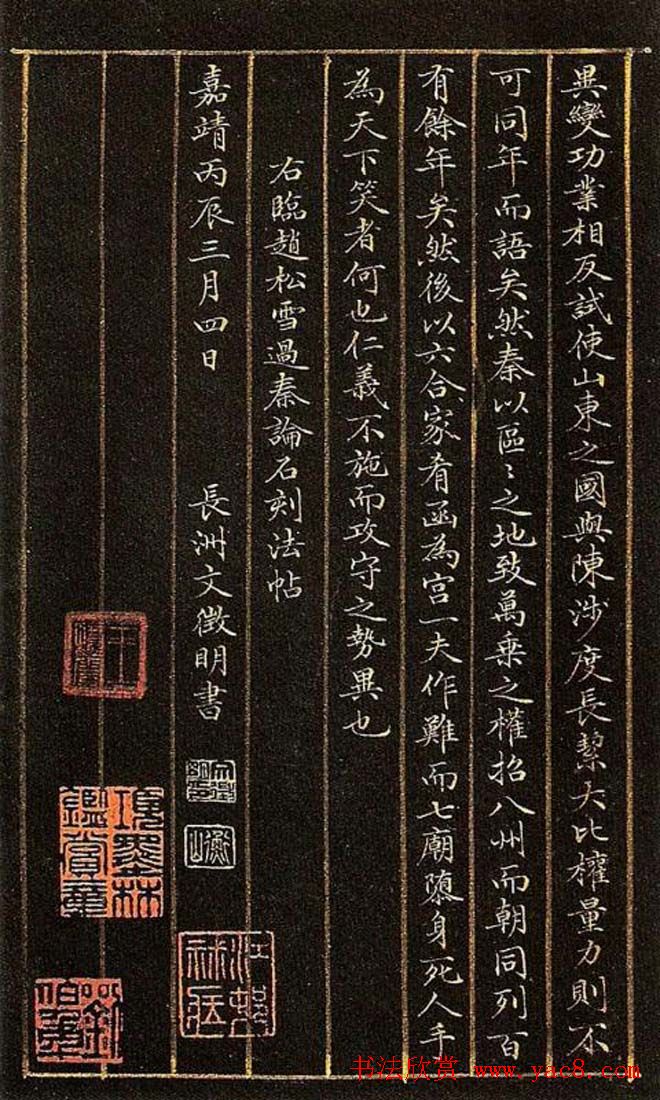 異變功業相反試使山東之國與陳涉度長絜大比權量力則不
可同年而語矣然秦以區〻之地致萬乗之權招八州而朝同列百
有餘年矣然後以六合家肴函為宫一夫作難而七廟隳身死人手
為天下笑者何也仁義不施而攻守之勢異也
右臨趙松雪過秦論石刻法帖
嘉靖丙辰三月四日 長洲文徵明書
衡山
项墨林鑑賞章
书法欣赏 www.yac8.com